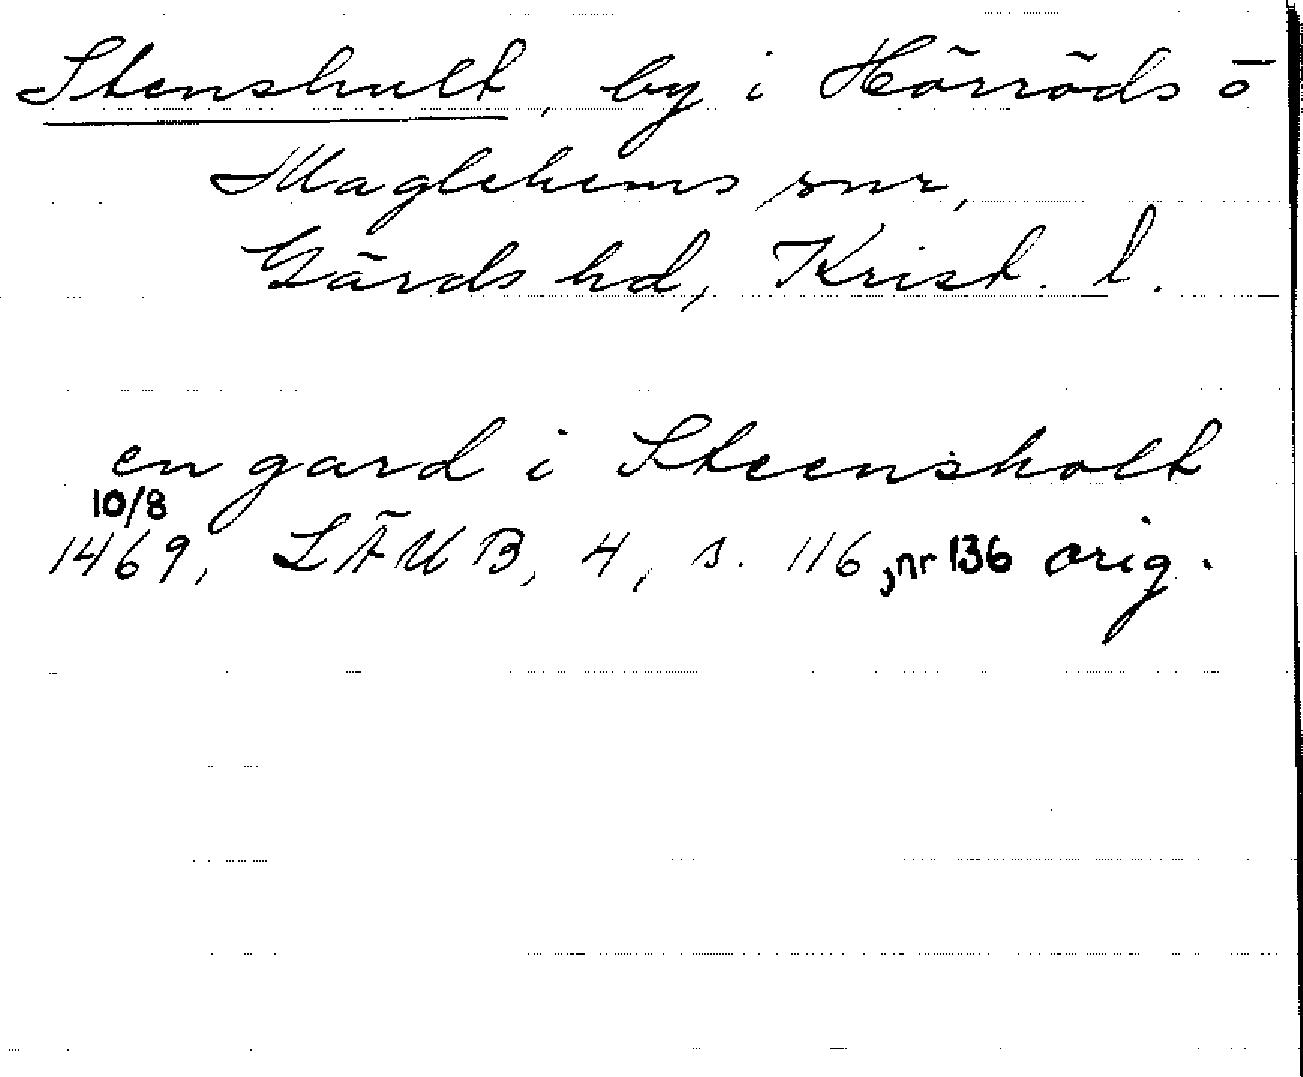 Stenshult, by i Hörröds o
Maglehems snr,
Gärds hd, Krist. l.
en gard i Steensholt
10/8
1469, LÄUB, 4, s. 116, nr 136 orig.